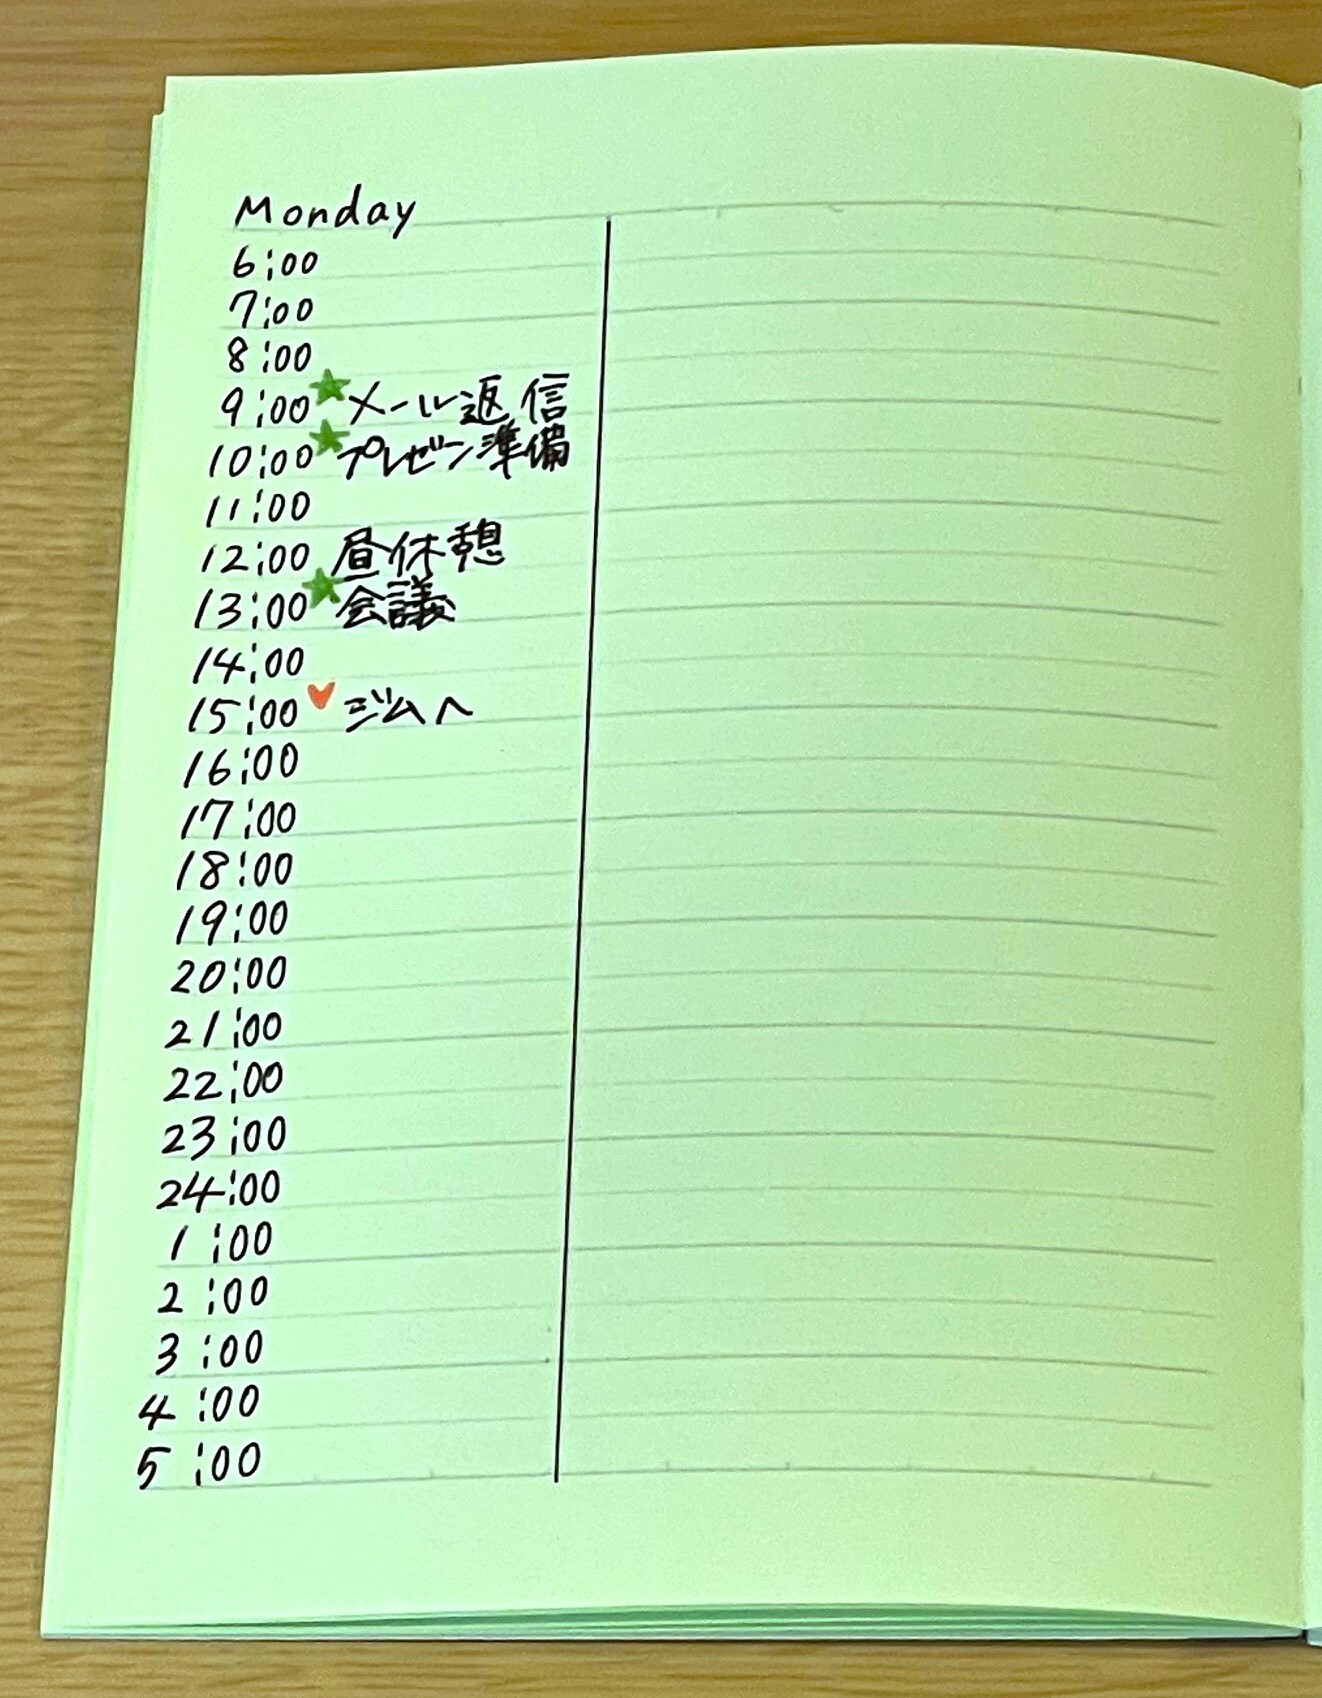 Monday
6:00
7:00
8:00
9:00★メール返信
10:00★プレゼン準備
11:00
12:00 昼休憩
13:00★会議
14:00
15:00♥ジムへ
16:00
17:00
18:00
19:00
20:00
21:00
22:00
23:00
24:00
1:00
2:00
3:00
4:00
5:00